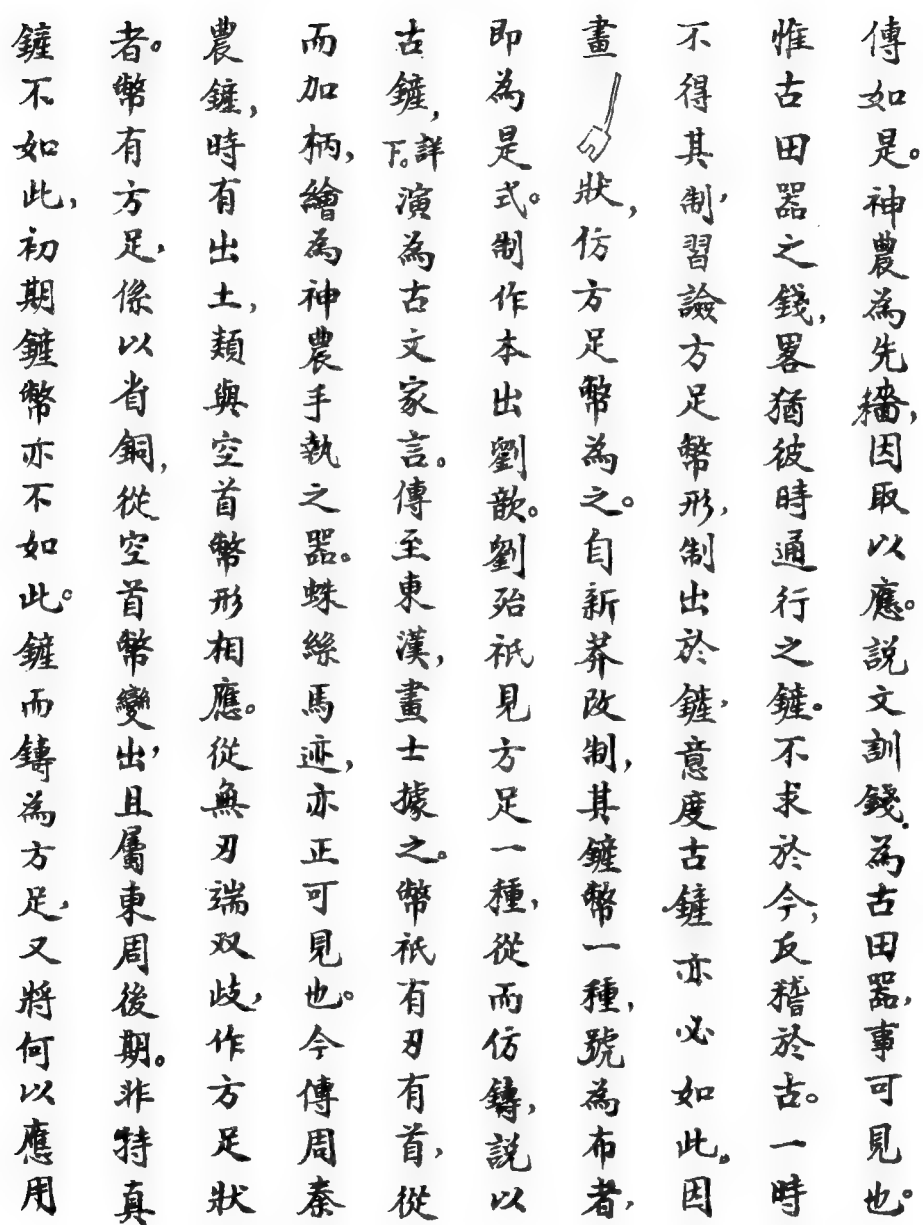 傳如是。神農為先穡,因取以應。説文訓錢為古田器,事可見也。
惟古田器之錢,畧猶彼時通行之鏟。不求於今,反稽於古。一時
不得其制,習諗方足幣形,制出於鏟,意度古鏟亦必如此。因
畫狀,仿方足幣為之。自新莽改制,其鏟幣一種,號為布者,
即為是式。制作本出劉歆。劉殆祇見方足一種,從而仿鑄,説以
古鏟,詳下。演為古文家言。傳至東漢,畫士據之。幣祇有刃有首,從
而加柄,繪為神農手執之器。蛛絲馬迹,亦正可見也。今傳周秦
農鏟,時有出土,類與空首幣形相應。從無刃端双歧,作方足狀
者。幣有方足,係以省銅,從空首幣變出,且屬東周後期。非特真
鏟不如此,初期鏟幣亦不如此。鏟而鑄為方足,又將何以應用